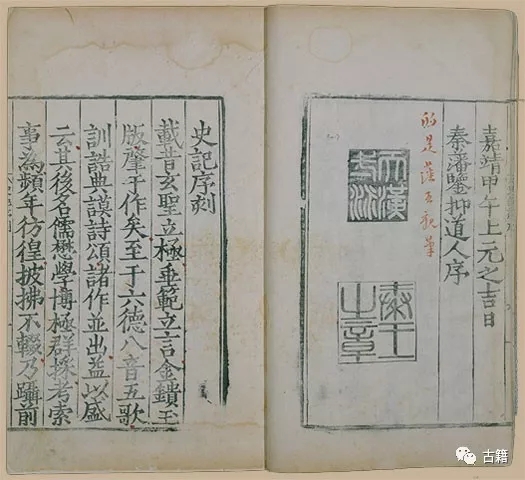 嘉靖甲午上元之吉日
秦藩鑒抑道人序
的是
親筆
天潢
秦王之章
史記序刻
載昔玄聖立極垂範立言金鏤玉
版肇于作矣至于六德八音五歌
訓誥典謨詩頌諸作並出益以盛
云其後名儒懋學博極群採考索
事為頻年彷徨披拂不輟乃躡前
古籍